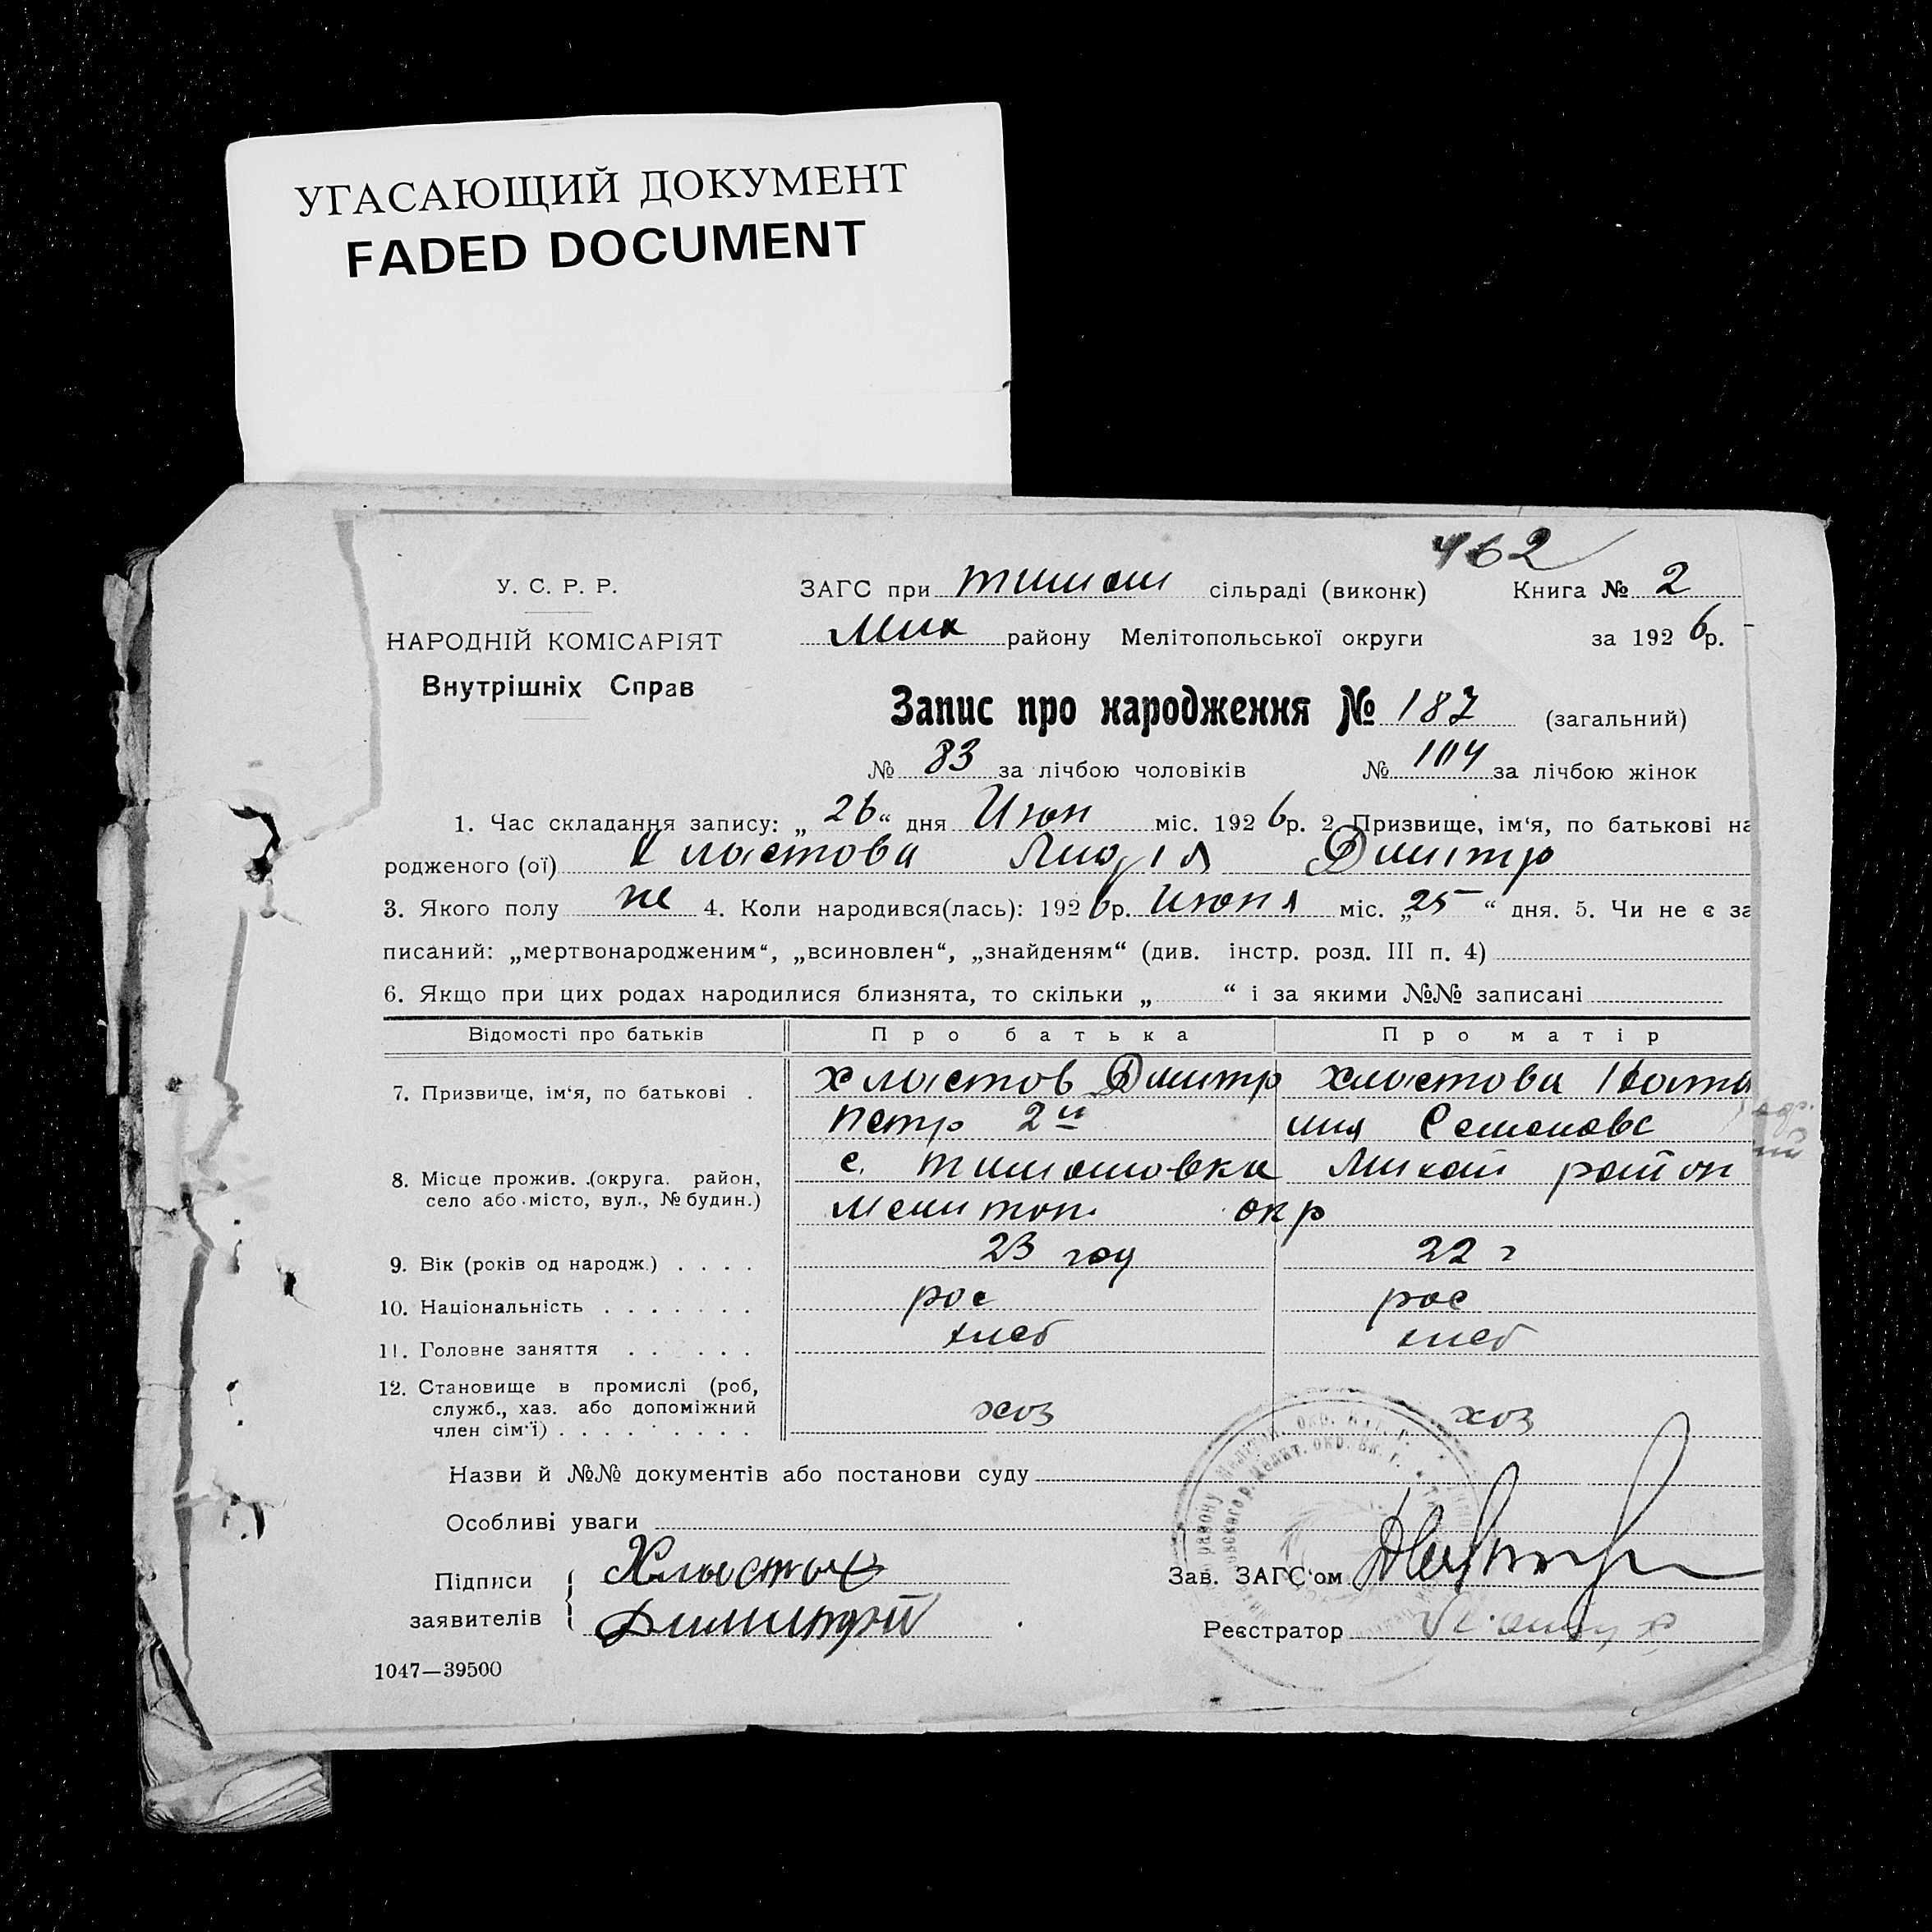 УГАСАЮЩИЙ ДОКУМЕНТ
FADED DOCUMENT
462
У. С. Р. Р.
НАРОДНІЙ КОМІСАРІЯТ
Внутрішніх Справ
ЗАГС при тимош сільраді (виконк) Книга № 2
Мих району Мелітопольської округи за 1926р.
Запис про народження № 187 (загальний)
№ 83 за лічбою чоловіків № 104 за лічбою жінок
1. Час складання запису: „26“ дня Июн міс. 1926р. 2. Призвище, ім‘я, по батькові на
родженого (ої) Хластова Лидія Дмитр
3. Якого полу же 4. Коли народився(лась): 1926р. Июня міс. „25“ дня. 5. Чи не є за
писаний: „мертвонародженим“, „всиновлен“, „знайденям“ (див. інстр. розд. III п. 4)
6. Якщо при цих родах народилися близнята, то скільки „ “ і за якими №№ записані
Відомості про батьків Про батька Про матір
7. Призвище, ім‘я, по батькові . Хластов Дмитр Хластова
Петр 2й Семенов
8. Місце прожив. (округа, район, с. Тимошовка Михай район
село або місто, вул., № будин.) Мелитоп. окр
9. Вік (років од народж.) . . . . 23 год 22 г
10. Національність . . . . . . . рос рос
11. Головне заняття . . . . . . хлеб хлеб
12. Становище в промислі (роб,
служб., хаз. або допоміжний хоз хоз
член сім‘ї) . . . . . . . . .
Назви й №№ документів або постанови суду
Особливі уваги
Підписи Хластов Зав. ЗАГС‘ом
заявителів Димитрий Реєстратор
1047—39500